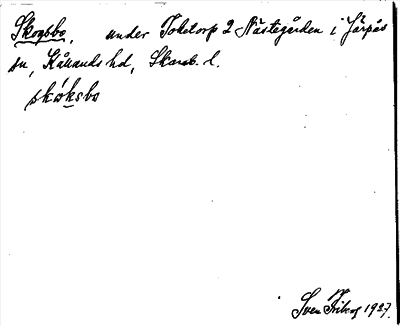 Skogsbo, under Toketorp 2 Nästegården i Järpås
sn, Kållands hd, Skarab. l.
skoksbo
Sven Frikog 1927.